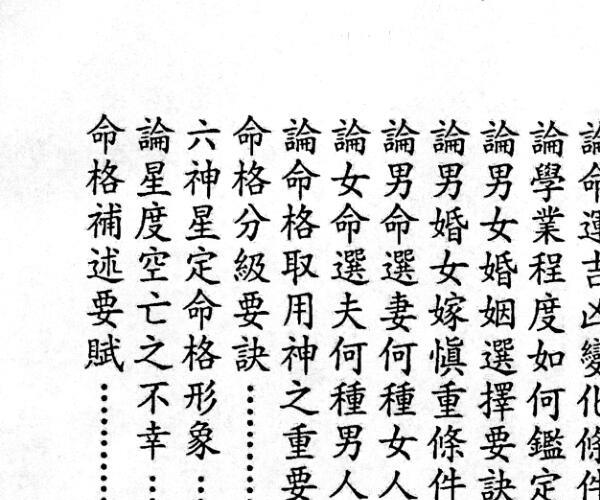 論命運吉凶變化條件
論學業程度如何鑑定
論男女婚姻選擇要訣
論男婚女嫁慎重條件
論男命選妻何種女人
論女命選夫何種男人
論命格取用神之重要
命格分級要訣⋯⋯
六神星定命格形象⋯
論星度空亡之不幸⋯
命格補述要賦⋯⋯